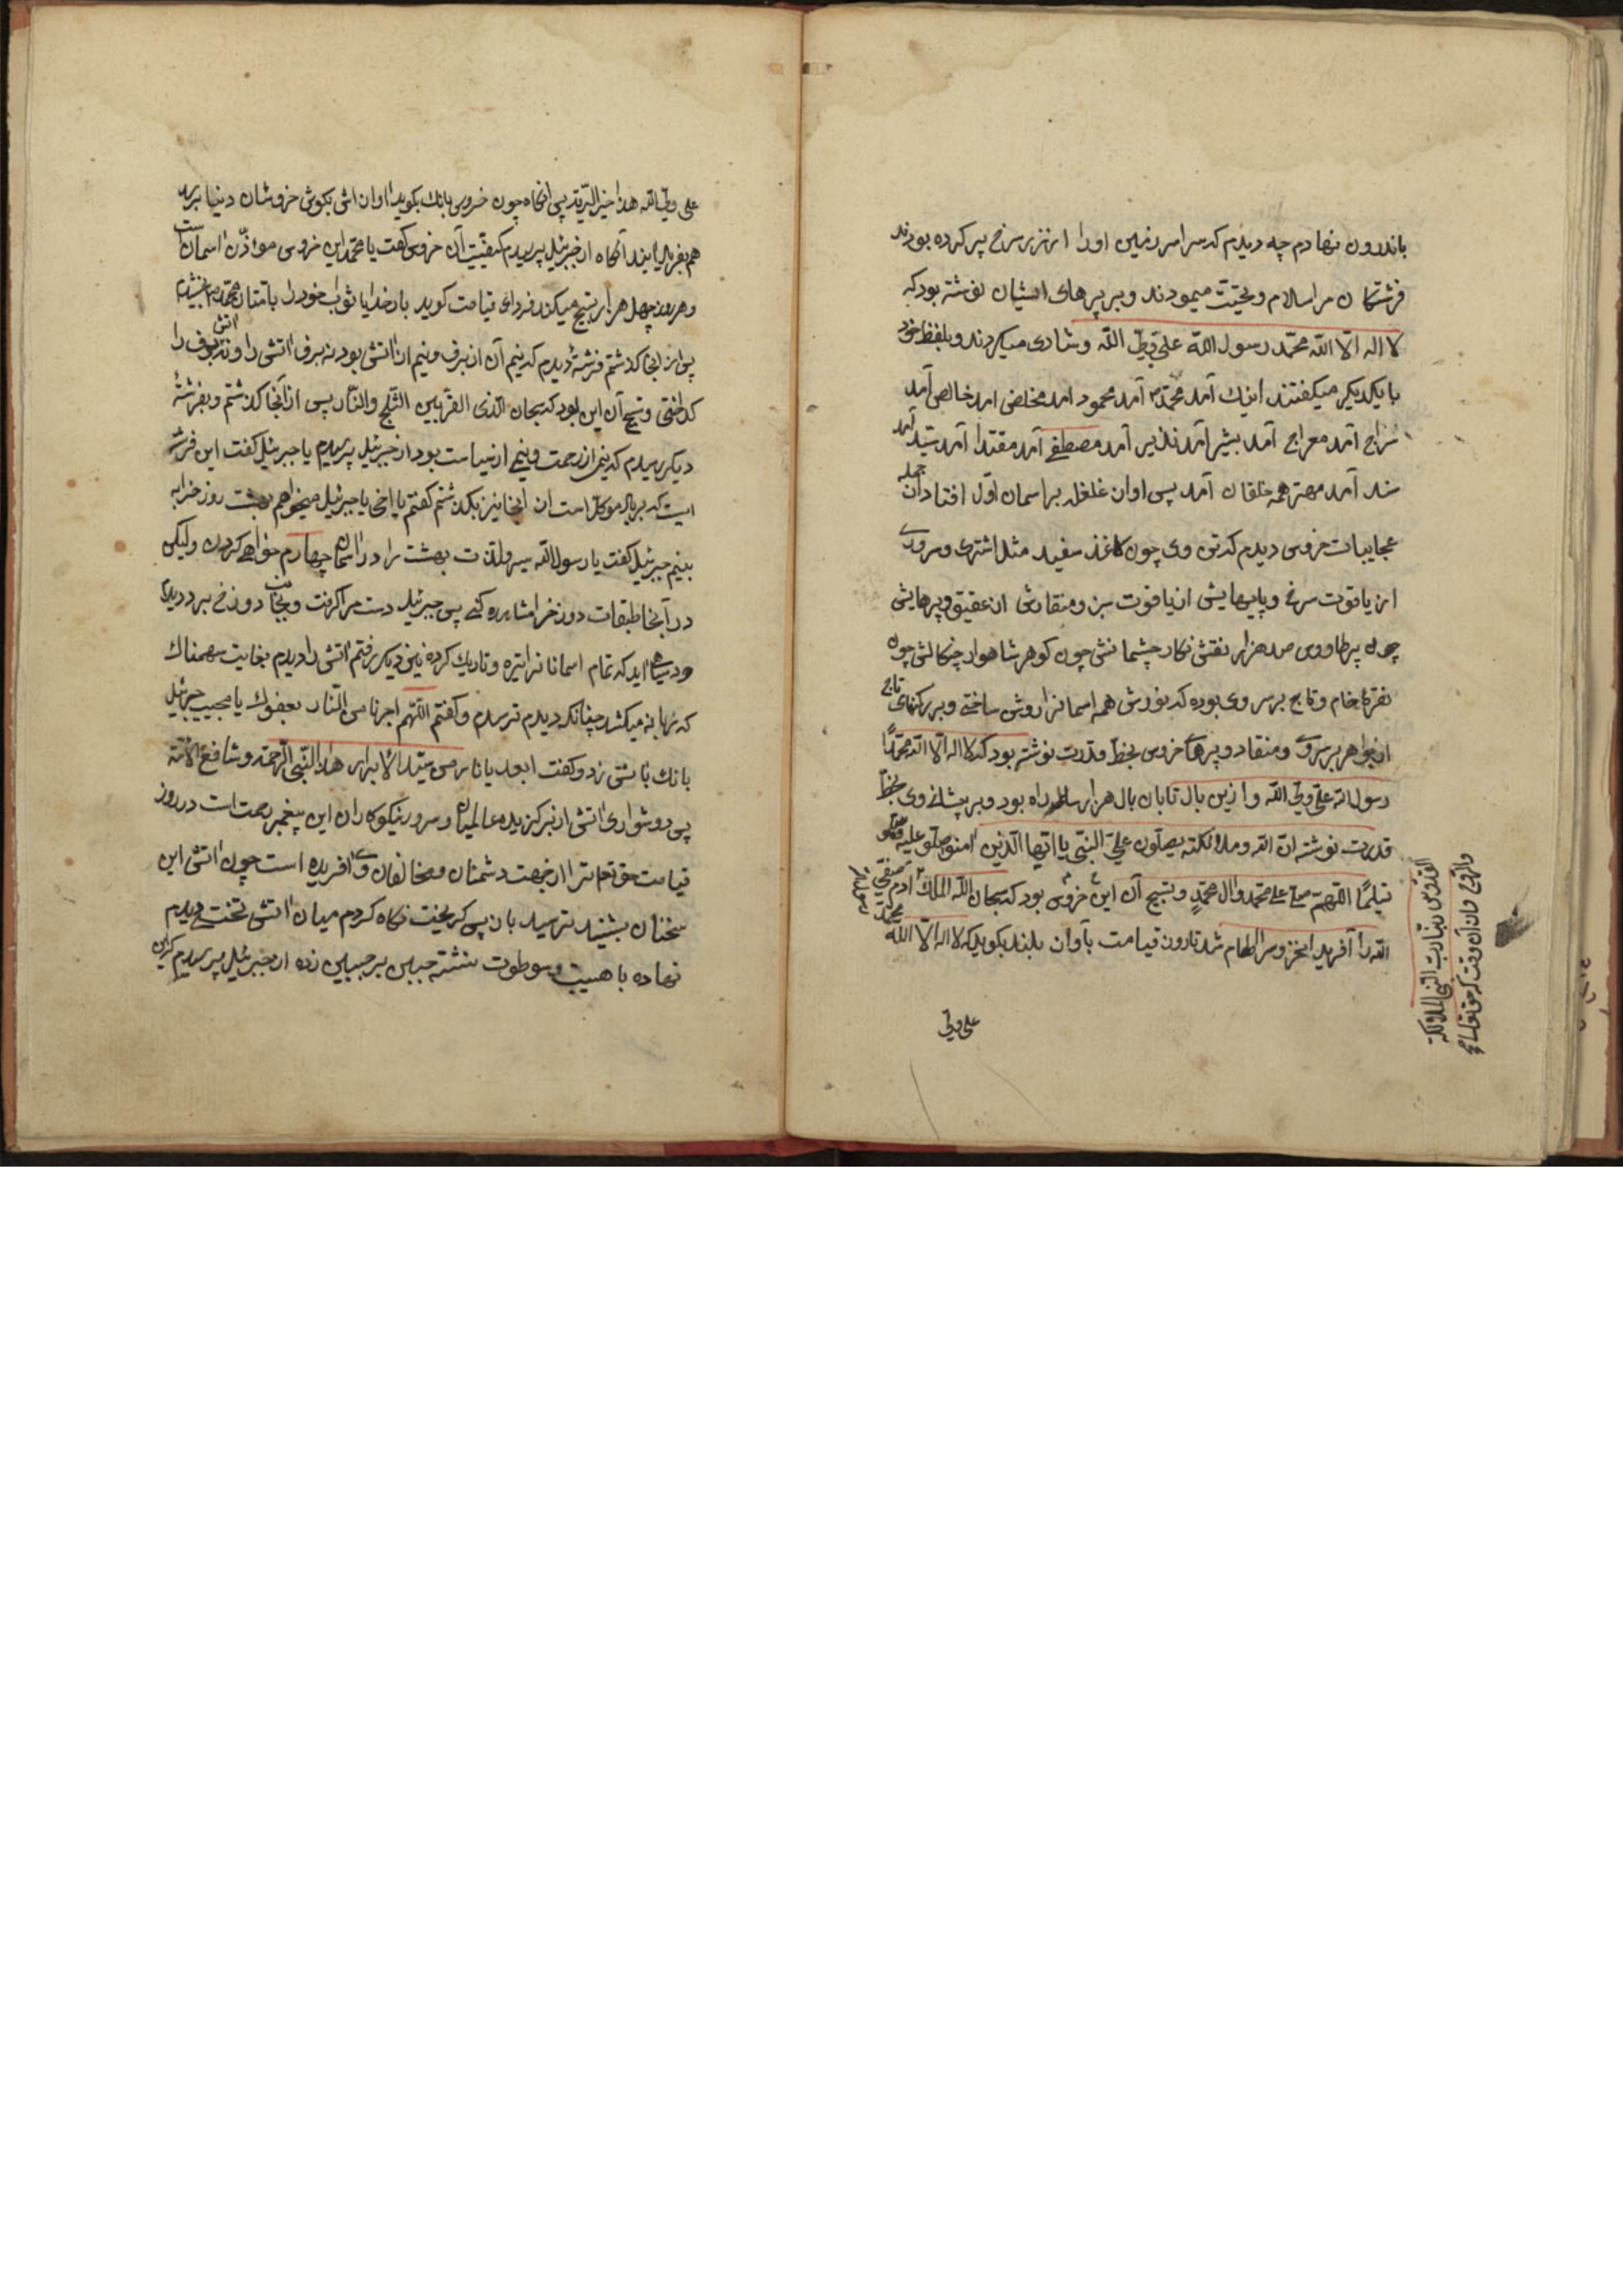 باندرون نهادم چه دیدم که سراسر زمین او را از زر سرخ پر کرده بودند
فرشتکان مرا سلام و تحیّت میمودند و بر پرهای ایشان نوشته بود که
لا اله الا الله محمّد رسول الله علی ولیّ الله و شادی میکردند و بلفظ خود
با یکدیکر میکفتند اینك آمد محمّد آمد محمود آمد مخلص آمد خالص آمد
سراج آمد معراج آمد بشیر آمد نذیر آمد مصطفی آمد مقتدا آمد سیّد آمد
سند آمد مهتر همه خلقان آمد پس اوان غلغله بر اسمان اوّل افتاد از جمله
عجایبات خروس دیدم که تن وی چون کاغذ سفید مثل اشتری و سروی
از یاقوت سرخ و پایهایش از یاقوت سبز و منقارش از عقیق و پرهایش
چون پر طاووس صد هزار نقش نکار چشمانش چون کوهر شاهوار چنکالش چون
نقرهٔ خام و تاج بر سر وی بوده که نورش همه اسمانرا روشن ساختی و بر رکنهای تاج
از جواهر بر سر وی و منقار و پرهای خروس بخطّ قدرت نوشته بود که لا اله الا الله محمّدًا
رسول الله علی ولیّ الله و ازین بال تا بان بال هزار ساله راه بود و بر پیشانی وی بخطّ
قدرت نوشته انّ الله وملائکته یصلّون علیَ النّبی یا ایّها الّذین امنو صلّو علیه وسلّمو
تسلیمًا اللّهمّ صلّ علی محمّد وال محمّدٍ و تسبیح آن این خروس بود که سبحان الله الملك
القدّوس ربّنا ربّ النبی الملائکة
والرّوح و از آن وقت که حق تعالی
آدم صفی
الله را آفرید تا روز قیامت بآوان بلند بکوید که لا اله الّا الله محمّد
علی ولیّ
علی ولیّ الله هذا خیر البّریّة پس انکاه چون خروس بانك بکوید اوان اش بکوش خروسان دنیا برسد
هم بفریاد ایند آنکاه از جبرئیل پرسیدم کیفیّت آن خروس کفت یا محمّد این خروس مؤذّن اسمان است
و هر روز چهل هزار تسبیح میکند فردای قیامت کوید بار خدایا ثواب خود را با متان محمّد بخشیدم
پس از انجا کذشتم فرشتهٔ دیدم که نیم آن از برف و نیم از اتش بود نه برف اتش را و نه اتش برف را
کداختی و تسبیح آن این بود که سبحان الّذی الفرّ بین الثّلج والنّار پس از آنجا کذشتم و بفرشتهٔ
دیکر رسیدم که نیم از رحمت و نیم از سیاست بود از جبرئیل پرسیدم یا جبرئیل کفت این فرشته
ایست که بر باد موکّل است از انجا نیز بکذشتم کفتم یا اخی یا جبرئیل میخواهم بهشت روزخ را به
بینم جبرئیل کفت یا رسول الله سیر و لذّت بهشت را در اسمان چهارم خواهی کردن ولیکن
در آنجا طبقات دوزخ را مشاهده کنی پس جبرئیل دست مرا کرفت و بجانب دوزخ برد دیدم
دود سیاه اید که تمام اسمانها را تیره و تاریك کرده نزدیکتر رفتم اتش را دیدم بغایت سهمناك
که زبانه میکشد چنانکه دیدم ترسیدم و کفتم اللّهم اجرنا من النّار بعفوك یا مجیب جبرئیل
بانك باتش زد و کفت ابعد یا نار من سیّد الابرار هذا النّبی الرّحمة و شافع الامّة
پس دوشوار ای اتش از بر کزیده عالمیان و سرور نیکوکاران این پیغمبر رحمت است در روز
قیامت حقّ تعا ترا از جهت دشمنان و مخالفان وی افریده است چون اتش این
سخنان بشنید بترسید باز پس کریخت نکاه کردم میان اتش تختی دیدم
نهاده با هیبت و سوطوت نشسته جبین بر جبین زده از جبرئیل پرسیدم که این